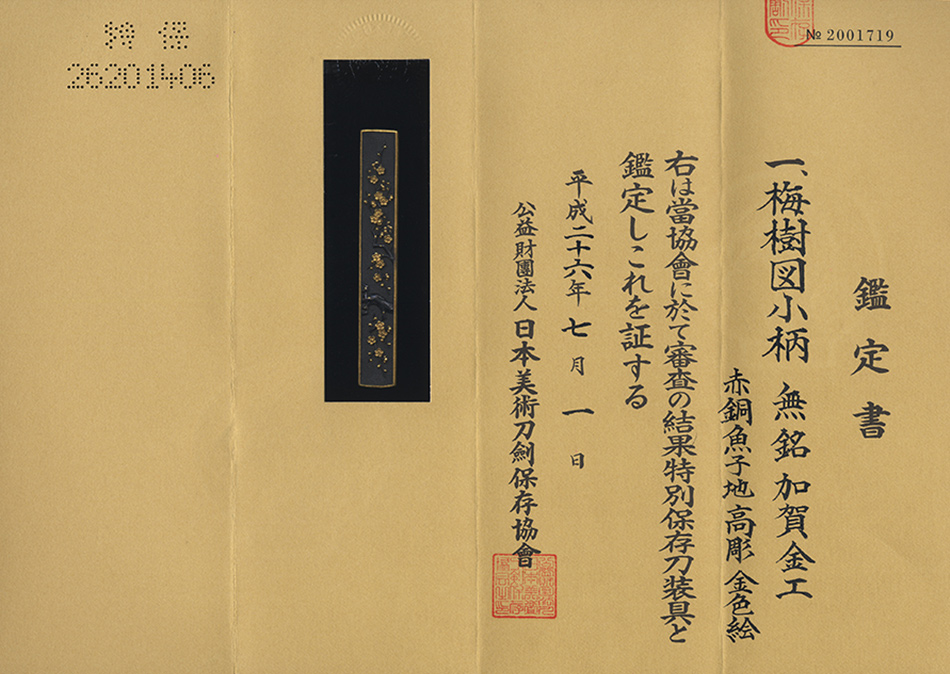 № 2001719
鑑定書
一、梅樹図小柄 無銘 加賀金工
赤銅魚子地 高彫 金色絵
右は當協會に於て審査の結果特別保存刀装具と
鑑定しこれを証する
平成二十六年 七月 一日
公益財團法人 日本美術刀劍保存協會
特保
26201406